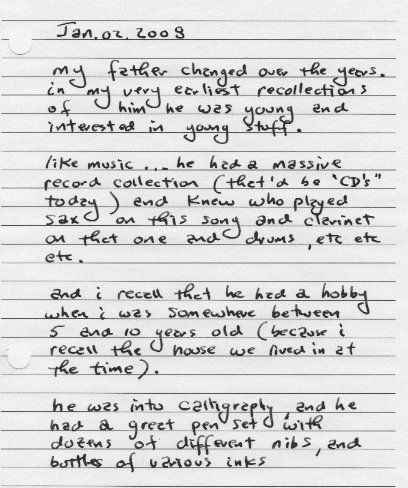 Jan.02.2008
my father changed over the years.
in my very earliest recollections
of him he was young and
interested in young stuff.
like music... he had a massive
record collection (that'd be "CD's"
today) and knew who played
sax on this song and clarinet
on that one and drums, etc etc
etc.
and i recall that he had a hobby
when i was somewhere between
5 and 10 years old (because i
recall the house we lived in at
the time).
he was into calligraphy, and he
had a great pen set with
dozens of different nibs, and
bottles of various inks